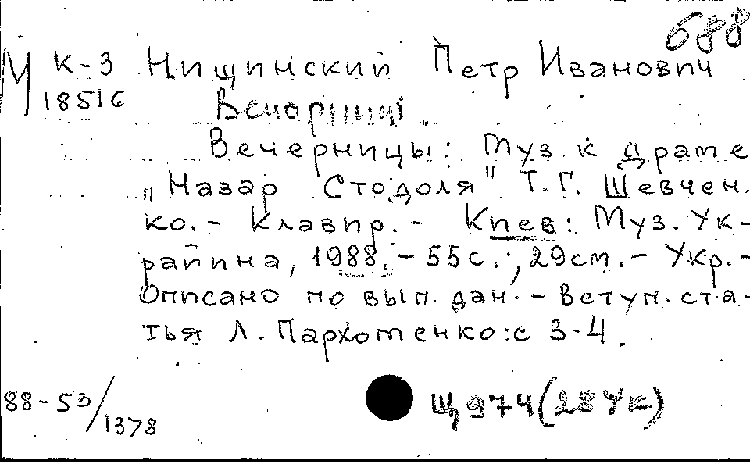 688
М К-3 Нищинский Петр Иванович
1851с Вечорниці.
Вечерницы: Муз. к драме
„Назар Стодоля" Т.Г. Шевчен-
ко. - Клавир. - Киев: Муз. Ук-
раина, 1988. - 55 с.; 29 см. - Укр. -
Описано по вып. дан. - Вступ. ста-
тья Л. Пархоменко: с 3-4.
88-53/1378 Щ974(2Ук)